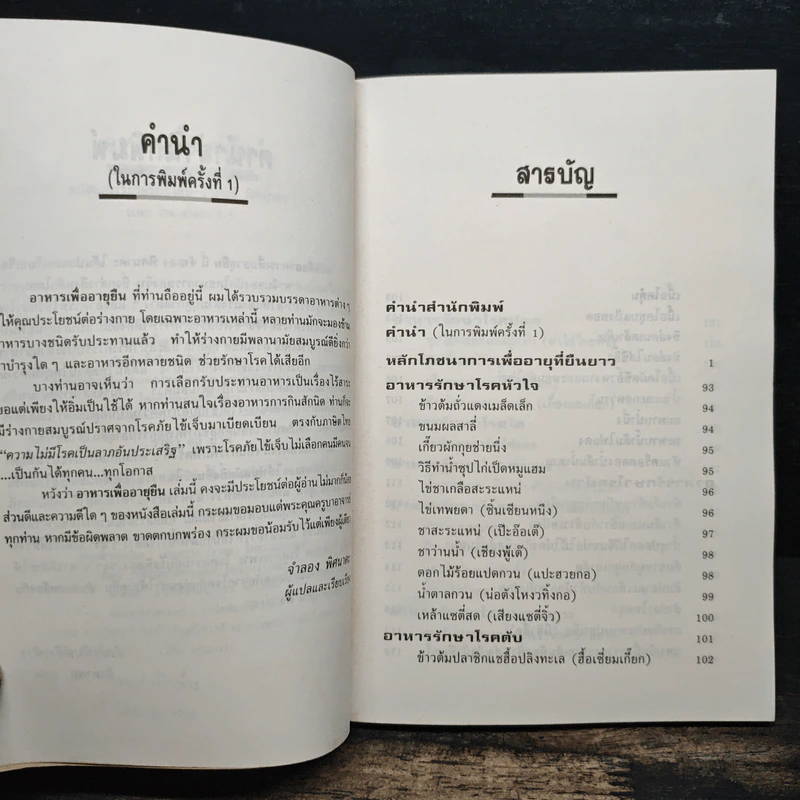 คำนำ
(ในการพิมพ์ครั้งที่ 1)
อาหารเพื่ออายุยืน ที่ท่านถืออยู่นี้ ผมได้รวบรวมบรรดาอาหารต่าง ๆ
ให้คุณประโยชน์ต่อร่างกาย โดยเฉพาะอาหารเหล่านี้ หลายท่านมักจะมองข้าม
อาหารบางชนิดรับประทานแล้ว ทำให้ร่างกายมีพลานามัยสมบูรณ์ดียิ่งกว่า
บำรุงใด ๆ และอาหารอีกหลายชนิด ช่วยรักษาโรคได้เสียอีก
บางท่านอาจเห็นว่า การเลือกรับประทานอาหารเป็นเรื่องไร้สาระ
ขอแต่เพียงให้อิ่มเป็นใช้ได้ หากท่านสนใจเรื่องอาหารการกินสักนิด ท่านก็จะ
มีร่างกายสมบูรณ์ปราศจากโรคภัยไข้เจ็บมาเบียดเบียน ตรงกับภาษิตไทย
“ความไม่มีโรคเป็นลาภอันประเสริฐ” เพราะโรคภัยไข้เจ็บไม่เลือกคนมีคนจน
...เป็นกันได้ทุกคน...ทุกโอกาส
หวังว่า อาหารเพื่ออายุยืน เล่มนี้ คงจะมีประโยชน์ต่อผู้อ่านไม่มากก็น้อย
ส่วนดีและความดีใด ๆ ของหนังสือเล่มนี้ กระผมขอมอบแด่พระคุณครูบาอาจารย์
ทุกท่าน หากมีข้อผิดพลาด ขาดตกบกพร่อง กระผมขอน้อมรับไว้แต่เพียงผู้เดียว
จำลอง พิศนาคะ
ผู้แปลและเรียบเรียง
สารบัญ
คำนำสำนักพิมพ์
คำนำ (ในการพิมพ์ครั้งที่ 1)
หลักโภชนาการเพื่ออายุที่ยืนยาว 1
อาหารรักษาโรคหัวใจ 93
ข้าวต้มถั่วแดงเมล็ดเล็ก 94
ขนมผลสาลี่ 94
เกี๊ยวผักกุยช่ายนึ่ง 95
วิธีทำน้ำซุปไก่เป็ดหมูแฮม 95
ไข่ชาเกลือสะระแหน่ 96
ไข่เทพยดา (ซิ้นเซียนหนึง) 96
ชาสะระแหน่ (เป๊าะอ๊อเต๊) 97
ชาว่านน้ำ (เชียงพู้เต๊) 98
ดอกไม้ร้อยแปดกวน (แปะฮวยกอ) 98
น้ำตาลกวน (น่อตังโหงวทิ้งกอ) 99
เหล้าแซตี่สด (เสียงแซตี่จิ้ว) 100
อาหารรักษาโรคตับ 101
ข้าวต้มปลาซิกแซฮื้อปลิงทะเล (ฮื้อเซี่ยมเกี๊ยก) 102